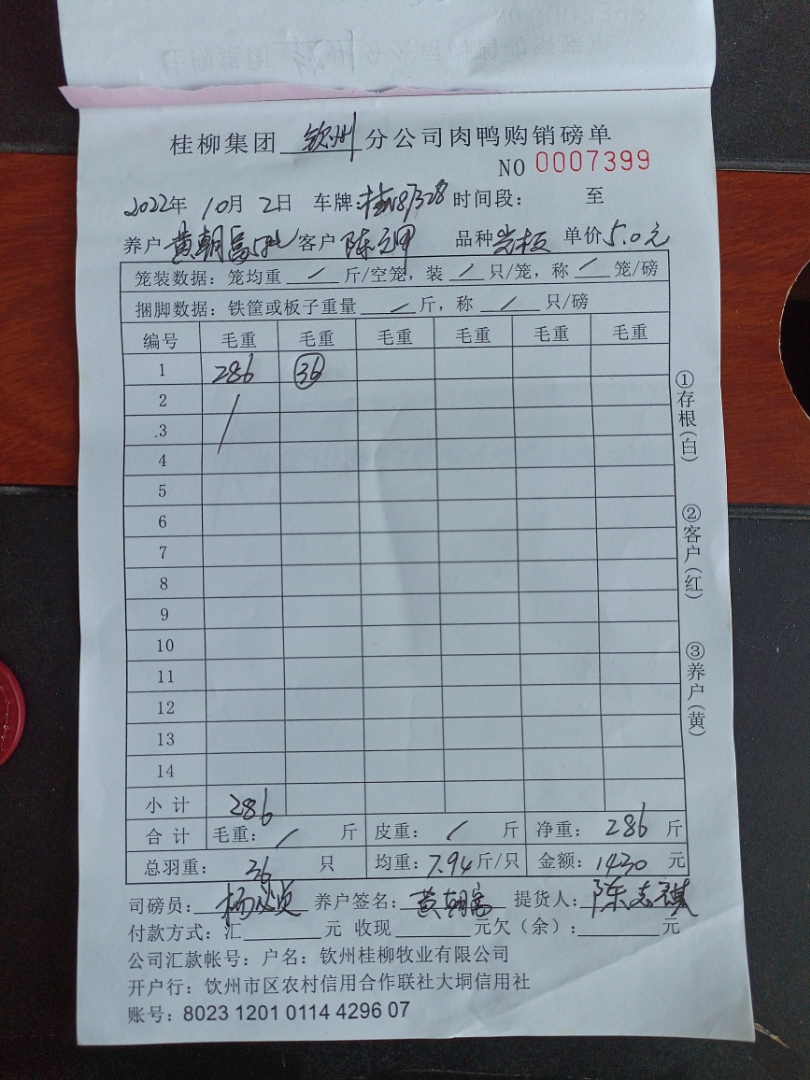 桂柳集团 钦州 分公司肉鸭购销磅单
NO 0007399
2022年 10月 2日 车牌: 时间段: 至
养户 黄朝富 客户 陈 品种 岩板 单价 5.0元
笼装数据: 笼均重 / 斤/空笼, 装 / 只/笼, 称 / 笼/磅
捆脚数据: 铁筐或板子重量 / 斤, 称 / 只/磅
编号 毛重 毛重 毛重 毛重 毛重 毛重
1 286 36
2 /
3
4
5
6
7
8
9
10
11
12
13
14
小计 286
合计 毛重: / 斤 皮重: / 斤 净重: 286 斤
总羽重: 36 只 均重: 7.94斤/只 金额: 1430 元
司磅员: 杨 养户签名: 黄朝富 提货人: 陈志祺
付款方式: 汇 元 收现 元欠(余): 元
公司汇款帐号: 户名: 钦州桂柳牧业有限公司
开户行: 钦州市区农村信用合作联社大垌信用社
账号: 8023 1201 0114 4296 07
①存根(白)
②客户(红)
③养户(黄)